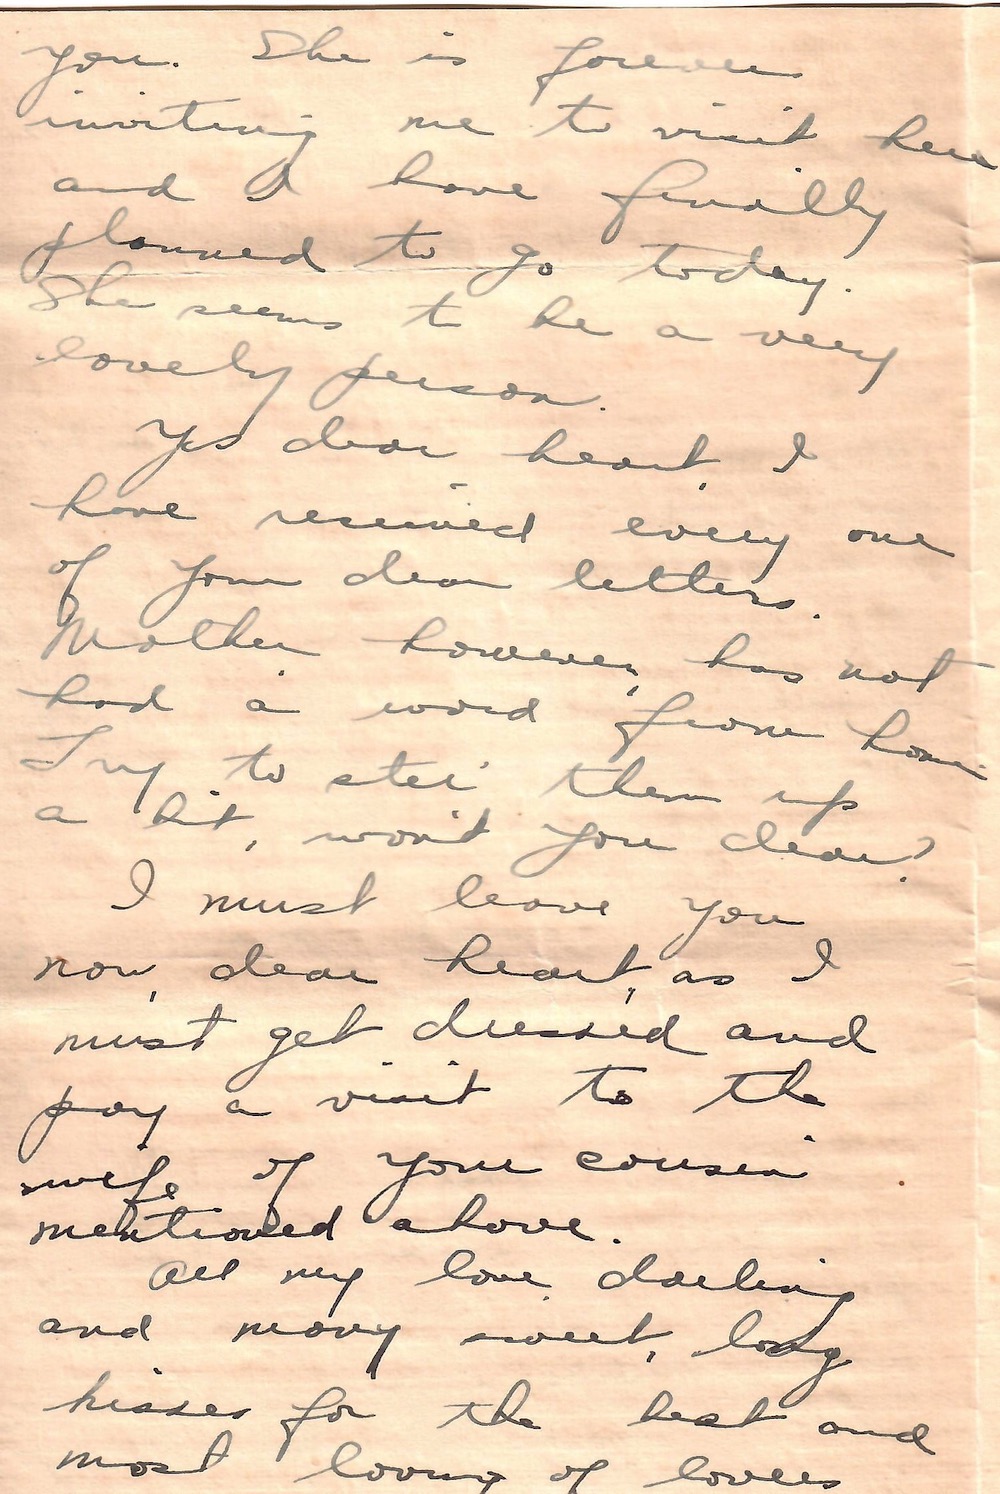 you. She is forever
inviting me to visit her
and I have finally
planned to go today.
She seems to be a very
lovely person.
Yes dear heart, I
have received every one
of your dear letters.
Mother however, has not
had a word from home.
Try to stir them up
a bit, won't you dear?
I must leave you
now, dear heart, as I
must get dressed and
pay a visit to the
wife of your cousin
mentioned above.
All my love, darling
and many sweet, long
kisses for the best and
most loving of lovers